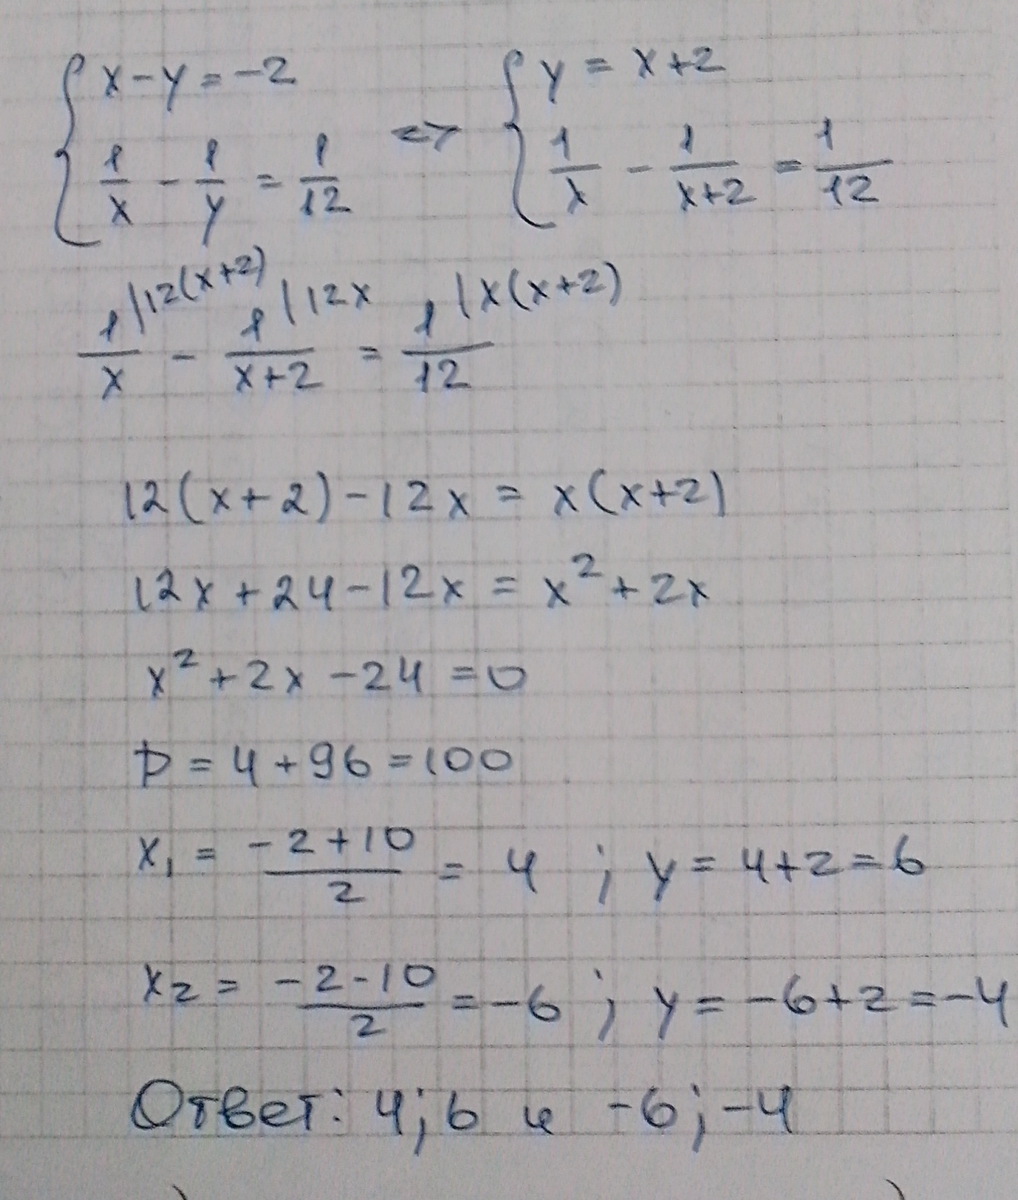 { x - y = -2 <=> { y = x+2
1/x - 1/y = 1/12 1/x - 1/(x+2) = 1/12
1/x |12(x+2) - 1/(x+2) |12x = 1/12 |x(x+2)
12(x+2) - 12x = x(x+2)
12x + 24 - 12x = x² + 2x
x² + 2x - 24 = 0
D = 4 + 96 = 100
x₁ = (-2+10)/2 = 4 ; y = 4+2 = 6
x₂ = (-2-10)/2 = -6 ; y = -6+2 = -4
Ответ: 4; 6 и -6; -4